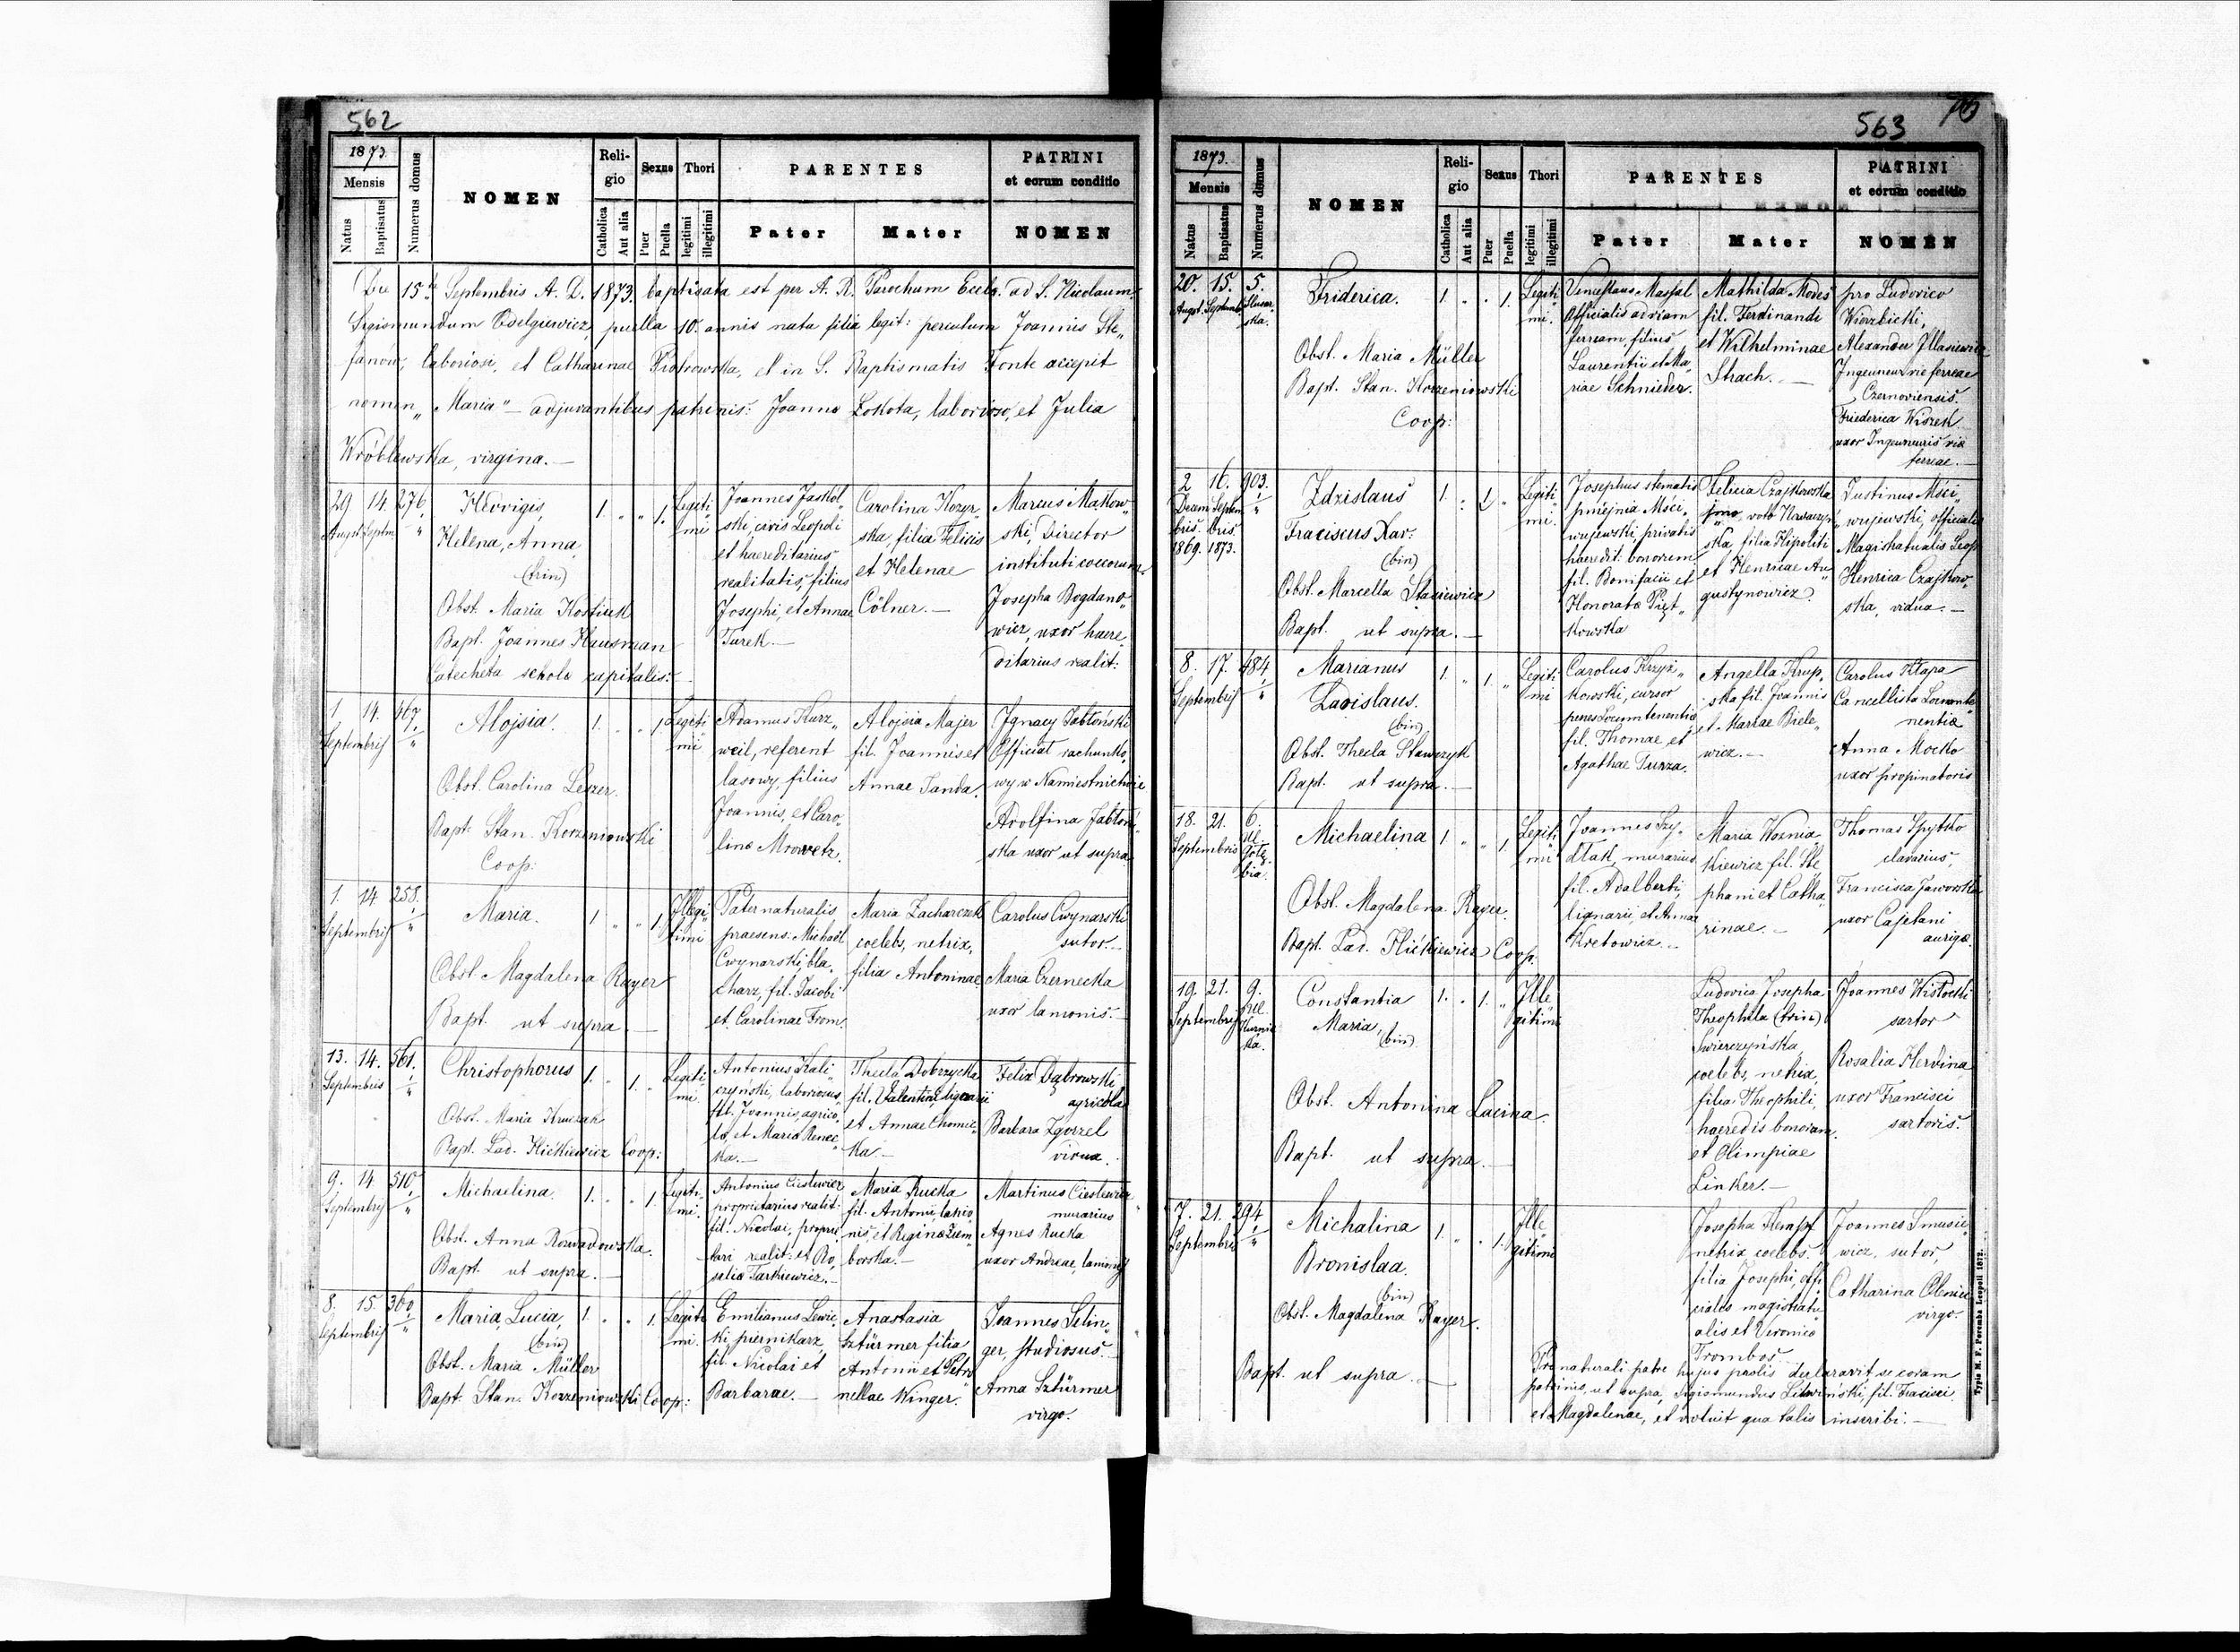 562
1873.
Mensis
Natus
Baptisatus
Numerus domus
NOMEN
Reli-
gio
Catholica
Aut alia
Sexus
Puer
Puella
Thori
legitimi
illegitimi
PARENTES
Pater
Mater
PATRINI
et eorum conditio
NOMEN
Die 15ta Septembris A. D. 1873. baptisata est per A. R. Parochum Eccla. ad S. Nicolaum
Sigismundum Odelgiewicz, puella 10. annis nata filia legit:
Joannis Ste„
fanow, laboriosi, et Catharinae Piotrowska, et in S. Baptismatis Fonte accepit
nomen „Maria" – adjuvantibus patrinis: Joanne Łokota, laborioso, et Julia
Wróblewska, virgina. —
29 14. 276.
August Septem
Hedvigis,
Helena, Anna,
(trin)
Obst. Maria Kostiuk
Bapt. Joannes Hausman
Catecheta schola capitalis:
1. „ „ 1.
Legiti
mi
Joannes Jaskól
ski, civis Leopoli
et haereditarius
realitatis, filius
Josephi, et Annae
Turek. —
Carolina Kozyr„
ska, filia Felicis
et Helenae
Cölner. —
Marcus Makow„
ski, Director
instituti coecorum
Josepha Bogdano„
wicz, uxor haere„
ditarius realit:
1. 14. 467.
Septembris
Alojsia.
Obst. Carolina Leszer.
Bapt. Stan. Korzeniowski
Coop:
1. „ „ 1.
Legiti
mi
Adamus Kurz„
weil, referent
lasowy, filius
Joannis, et Caro„
linae Mrowetz.
Alojsia Majer
fil. Joannis et
Annae Janda.
Ignacy Jabłoński
Officiał rachunko„
wy w Namiestnictwie
Adolfina Jabłoń„
ska uxor ut supra
1. 14 258.
Septembris
Maria.
Obst. Magdalena Rayer
Bapt. ut supra —
1 „ „ 1.
Illegi
timi
Pater naturalis
praesens: Michaël
Cwynarski, bla„
charz, fil. Jacobi
et Carolinae From.
Maria Zacharczuk
coelebs, netrix,
filia Antoninae
Carolus Cwynarski
sutor. —
Maria Czernecka
uxor lanionis. —
13. 14. 561.
Septembris
Christophorus
Obst. Maria Kruczak
Bapt. Lad. Hićkiewicz Coop:
1. „ 1. „
Legiti
mi.
Antonius Kali„
czyński, laboriosus,
fil. Joannis, agrico„
lo, et Maria Renec„
ka. —
Thecla Dobrzycka
fil. Valentini, lignarii
et Annae Chomic„
ka. —
Felix Dąbrowski
agricola
Barbara Zgorzel
vidua.
9. 14. 510.
Septembris
Michaelina.
Obst. Anna Rozwadowska.
Bapt. ut supra. —
1. „ „ 1.
Legiti
mi.
Antonius Cieslewicz
proprietarius realit:
fil. Nicolai, proprie
tari realit: et Ro„
salia Tarkiewicz. —
Maria Rucka
fil. Antonii, lanio
nis, et Regina Ziem„
borska. —
Martinus Cieslewicz
murarius
Agnes Rucka
uxor Andreae, lanionis
8. 15. 360.
Septembris
Maria, Lucia,
(bin)
Obst. Maria Müller
Bapt. Stan. Korzeniowski Coop:
1. „ „ 1.
Legiti
mi.
Emilianus Lewic
ki, piernikarz,
fil. Nicolai et
Barbarae. —
Anastasia
Sztürmer filia
Antonii et Petro
nellae Winger.
Joannes Selin„
ger, studiosus. —
Anna Sztürmer
virgo.
563
76
1873.
Mensis
Natus
Baptisatus
Numerus domus
NOMEN
Reli-
gio
Catholica
Aut alia
Sexus
Puer
Puella
Thori
legitimi
illegitimi
PARENTES
Pater
Mater
PATRINI
et eorum conditio
NOMEN
20. 15. 5.
August. Septemb.
Friderica.
Obst. Maria Müller
Bapt. Stan. Korzeniowski
Coop:
1. „ „ 1.
Legiti
mi.
Venceslaus Massal
Officialis ad viam
ferream, filius
Laurentii et Ma„
riae Schnieder.
Mathilda Modes
fil. Ferdinandi
et Wilhelminae
Strach. —
pro Ludovico
Wierzbicki,
Alexander Illasiewicz
Ingeuneur vie ferreae
Czernoviensis.
Friederica Wiszek
uxor Ingeuneuris vie
ferreae. —
2 16. 903.
Decem Septem
bris. bris.
1869. 1873.
Zdzislaus
Fraciscus Xav:
(bin)
Obst. Marcella Stasiewicz
Bapt. ut supra. —
1. „ 1. „
Legiti
mi.
Josephus stematis
pniejnia Mści„
wujewski, privatis
haeredit: bonorum
fil. Bonifacii et
Honorata Pięt„
kowska
Felicia Czajkowska
ska, filia Hipoliti
et Henricae Au„
gustynowicz.
Justinus Mści„
wujewski, officialis
Magistratualis Leop.
Henrica Czajkow„
ska, vidua. —
8. 17. 484.
Septembris
Marianus
Ladislaus.
(bin)
Obst. Thecla Stawczyk
Bapt. ut supra. —
1. „ 1. „
Legiti
mi
Carolus Krzyż„
kowski, cursor
penes Locumtenentis
fil. Thomae et
Agathae Turza.
Angella Krup„
ska fil. Joannis
et Mariae Biele„
wicz. —
Carolus Kłapa
Cancellista Locumte
nentiæ
Anna Mocko
uxor propinatoris
18. 21. 6.
Septembris
Michaelina
Obst. Magdalena Rayer.
Bapt. Lad. Hićkiewicz Coop.
1. „ „ 1.
Legiti
mi
Joannes Szy„
dłak, murarius
fil. Adalberti,
lignarii, et Annae
Kretowicz. —
Maria Woznia„
kiewicz fil. Ste
phani et Catha„
rinae. —
Thomas Spytko
clavarius,
Francisca Jaworska
uxor Cajetani
aurigæ.
19. 21. 9.
Septembris
Constantia
Maria,
(bin)
Obst. Antonina Lacina.
Bapt. ut supra. —
1. „ 1. „
Ille
gitimi
Ludovica Josepha
Theophila (trin)
Swierczyńska
coelebs, netrix,
filia Theophili,
haeredis bonorum.
et Olimpiae
Linker. —
Joannes Wisłocki
sartor
Rosalia Herdina
uxor Francisci
sartoris.
7. 21. 294.
Septembris
Michalina
Bronislaa.
(bin)
Obst. Magdalena Rayer.
Bapt. ut supra. —
1. „ „ 1.
Ille
gitimi
Josepha Kempf
netrix coelebs.
filia Josephi, offi
cialis magistratu
alis et Veronica
Trombos
Joannes Smusie
wicz, sutor,
Catharina
virgo.
Pro naturali patre hujus prolis declaravit se coram
patrinis, ut supra, Sigismundus Litwiński, fil. Fracisci
et Magdalenae, et voluit qua talis inscribi. —
Typis M. F. Poremba Leopoli 1872.